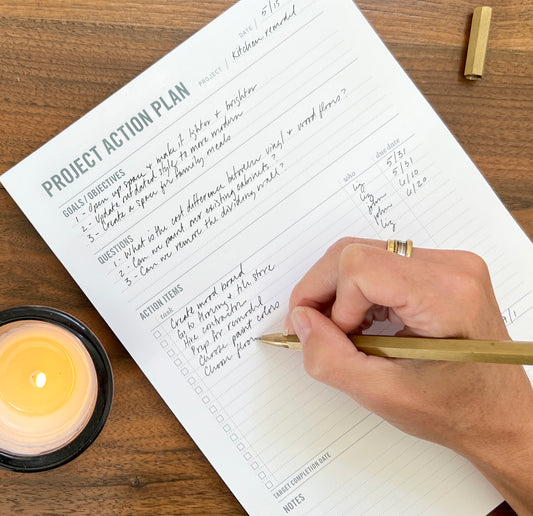 PROJECT ACTION PLAN
DATE / 5/15
PROJECT / Kitchen remodel
GOALS/OBJECTIVES
1 - Open up space & make it lighter & brighter
2 - Update outdated style to more modern
3 - Create a space for family meals
QUESTIONS
1 - What is the cost difference between vinyl & wood floors?
2 - Can we paint our existing cabinets?
3 - Can we remove the dividing wall?
ACTION ITEMS
task who due date
Create mood board liz 5/31
Go to flooring & tile store liz 5/31
Hire contractor John 6/10
Prep for remodel John 6/20
Choose paint colors liz
Choose
TARGET COMPLETION DATE
NOTES